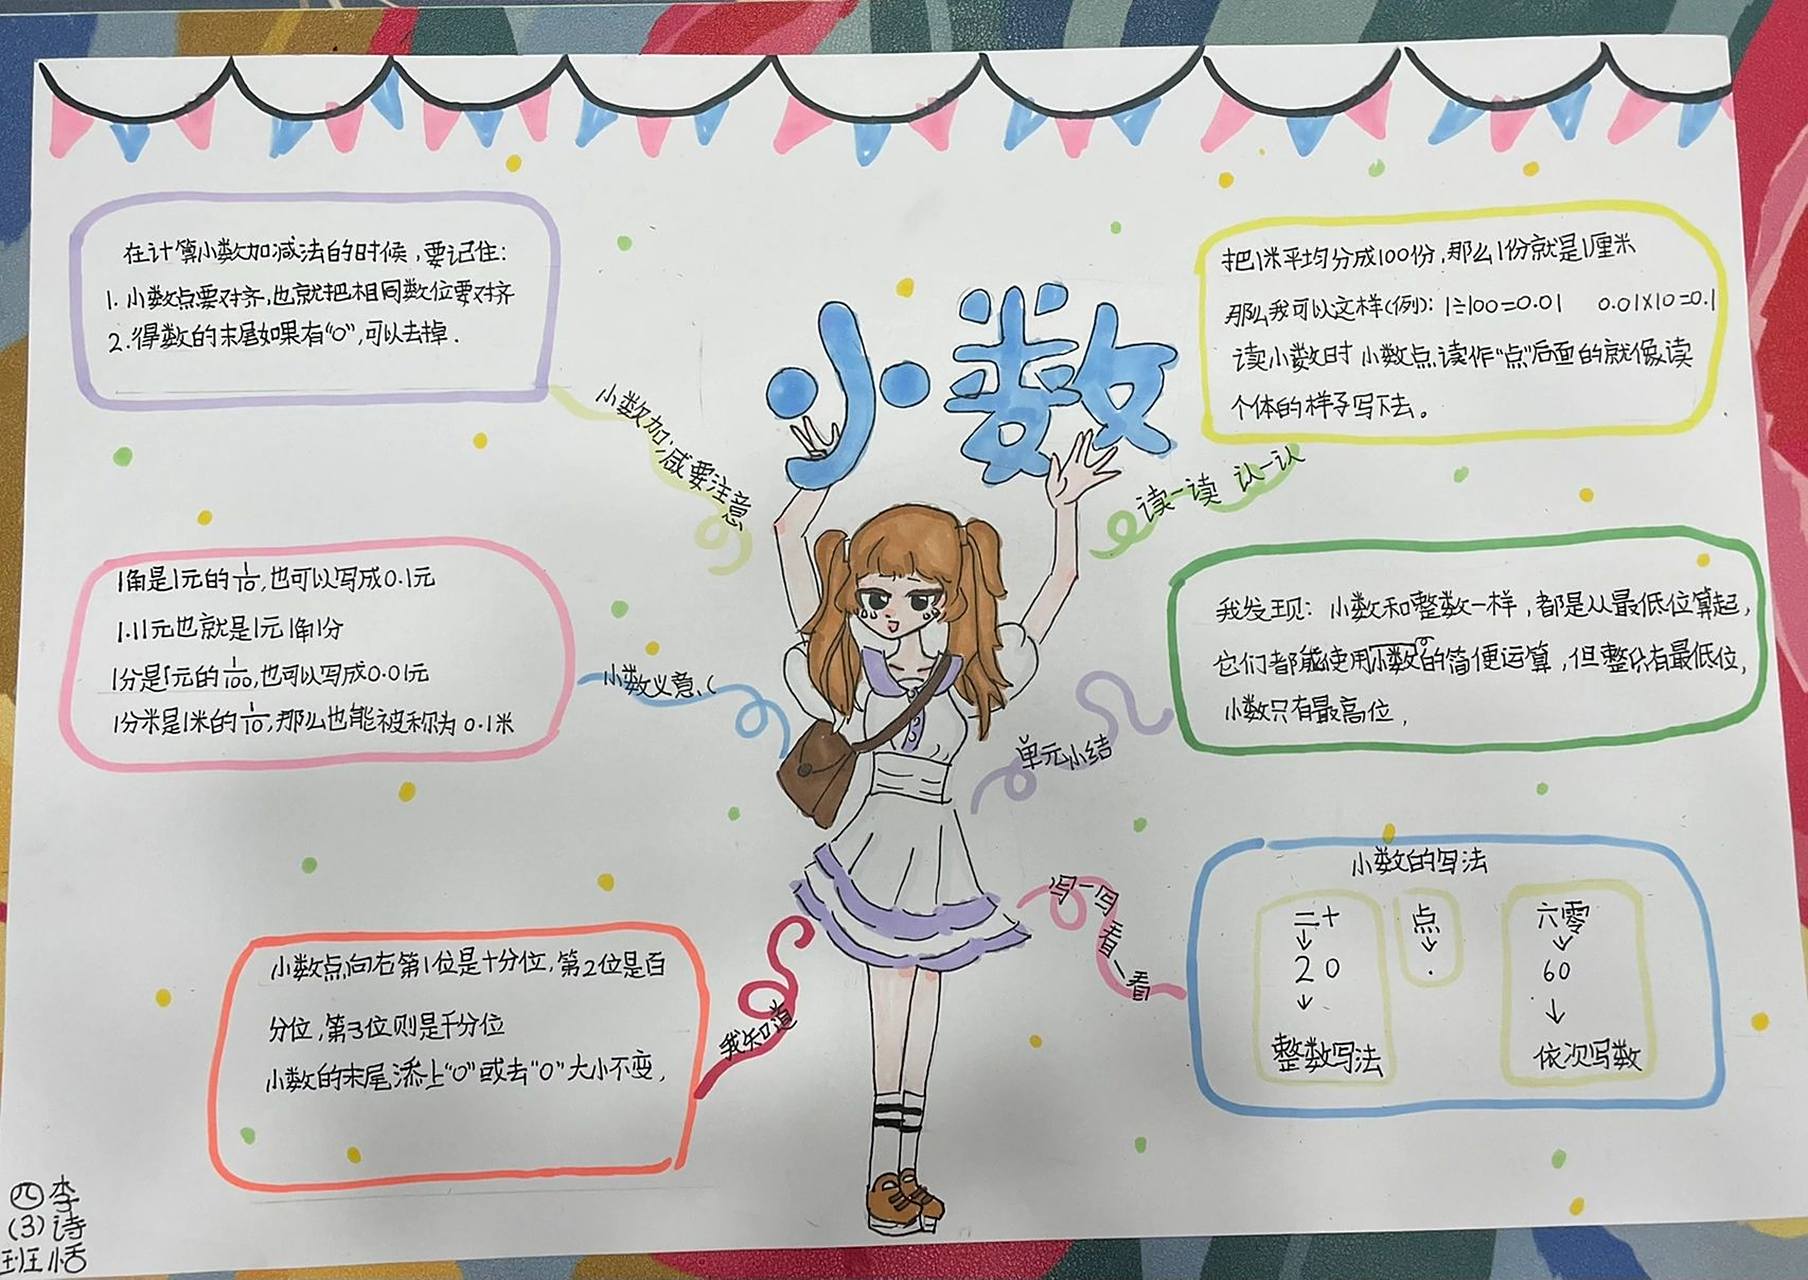 小数
在计算小数加减法的时候,要记住:
1. 小数点要对齐,也就把相同数位要对齐
2. 得数的末尾如果有“0”,可以去掉.
小数加、减要注意
1角是1元的1/10,也可以写成0.1元
1.11元也就是1元1角1分
1分是1元的1/100,也可以写成0.01元
1分米是1米的1/10,那么也能被称为0.1米
小数义意
小数点向右第1位是十分位,第2位是百
分位,第3位则是千分位
小数的末尾添上“0”或去“0”大小不变,
我知道
把1米平均分成100份,那么1份就是1厘米
那么我可以这样(例): 1÷100=0.01 0.01×10=0.1
读小数时 小数点读作“点”后面的就像读
个体的样子写下去。
读一读 认一认
我发现: 小数和整数一样,都是从最低位算起,
它们都能使用小数的简便运算,但整只有最低位,
小数只有最高位,
单元小结
小数的写法
二十 点 六零
↓ ↓ ↓
20 . 60
↓ ↓
整数写法 依次写数
写一写看一看
四(3)班
李诗恬